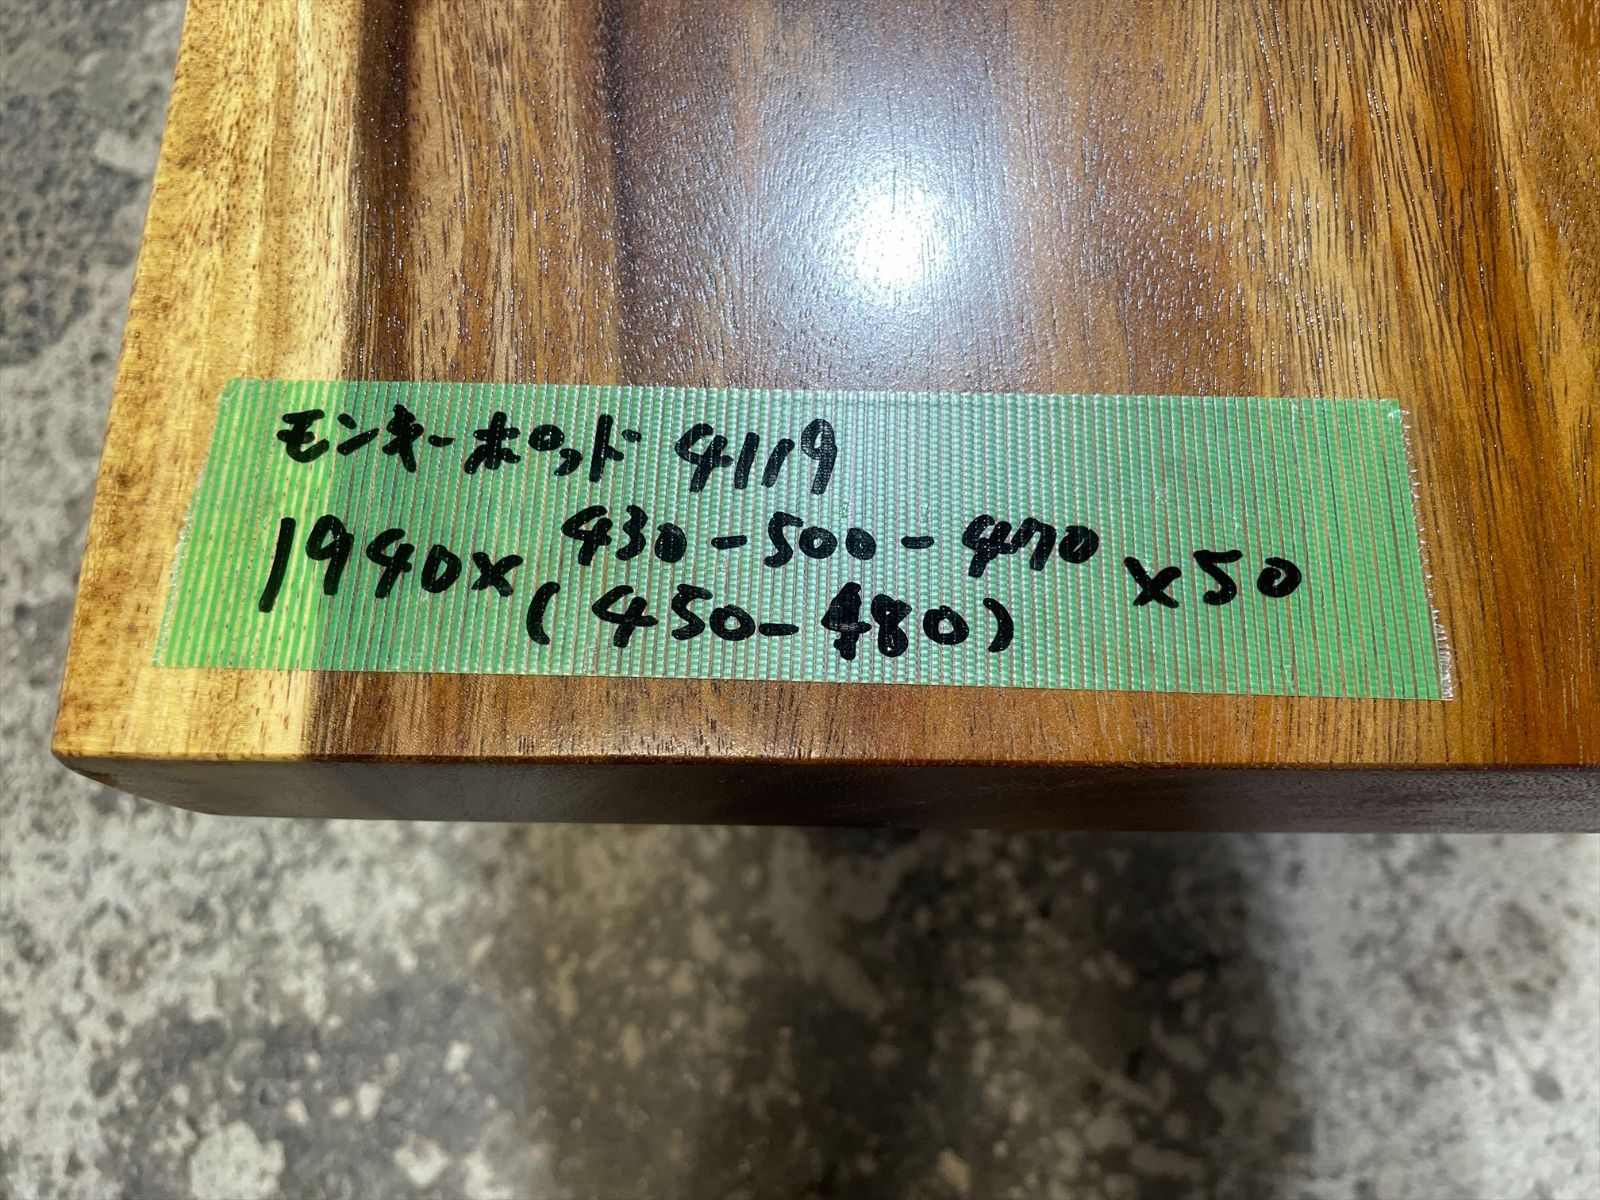 モンキーポッド 4119
1940×430-500-470×50
(450-480)